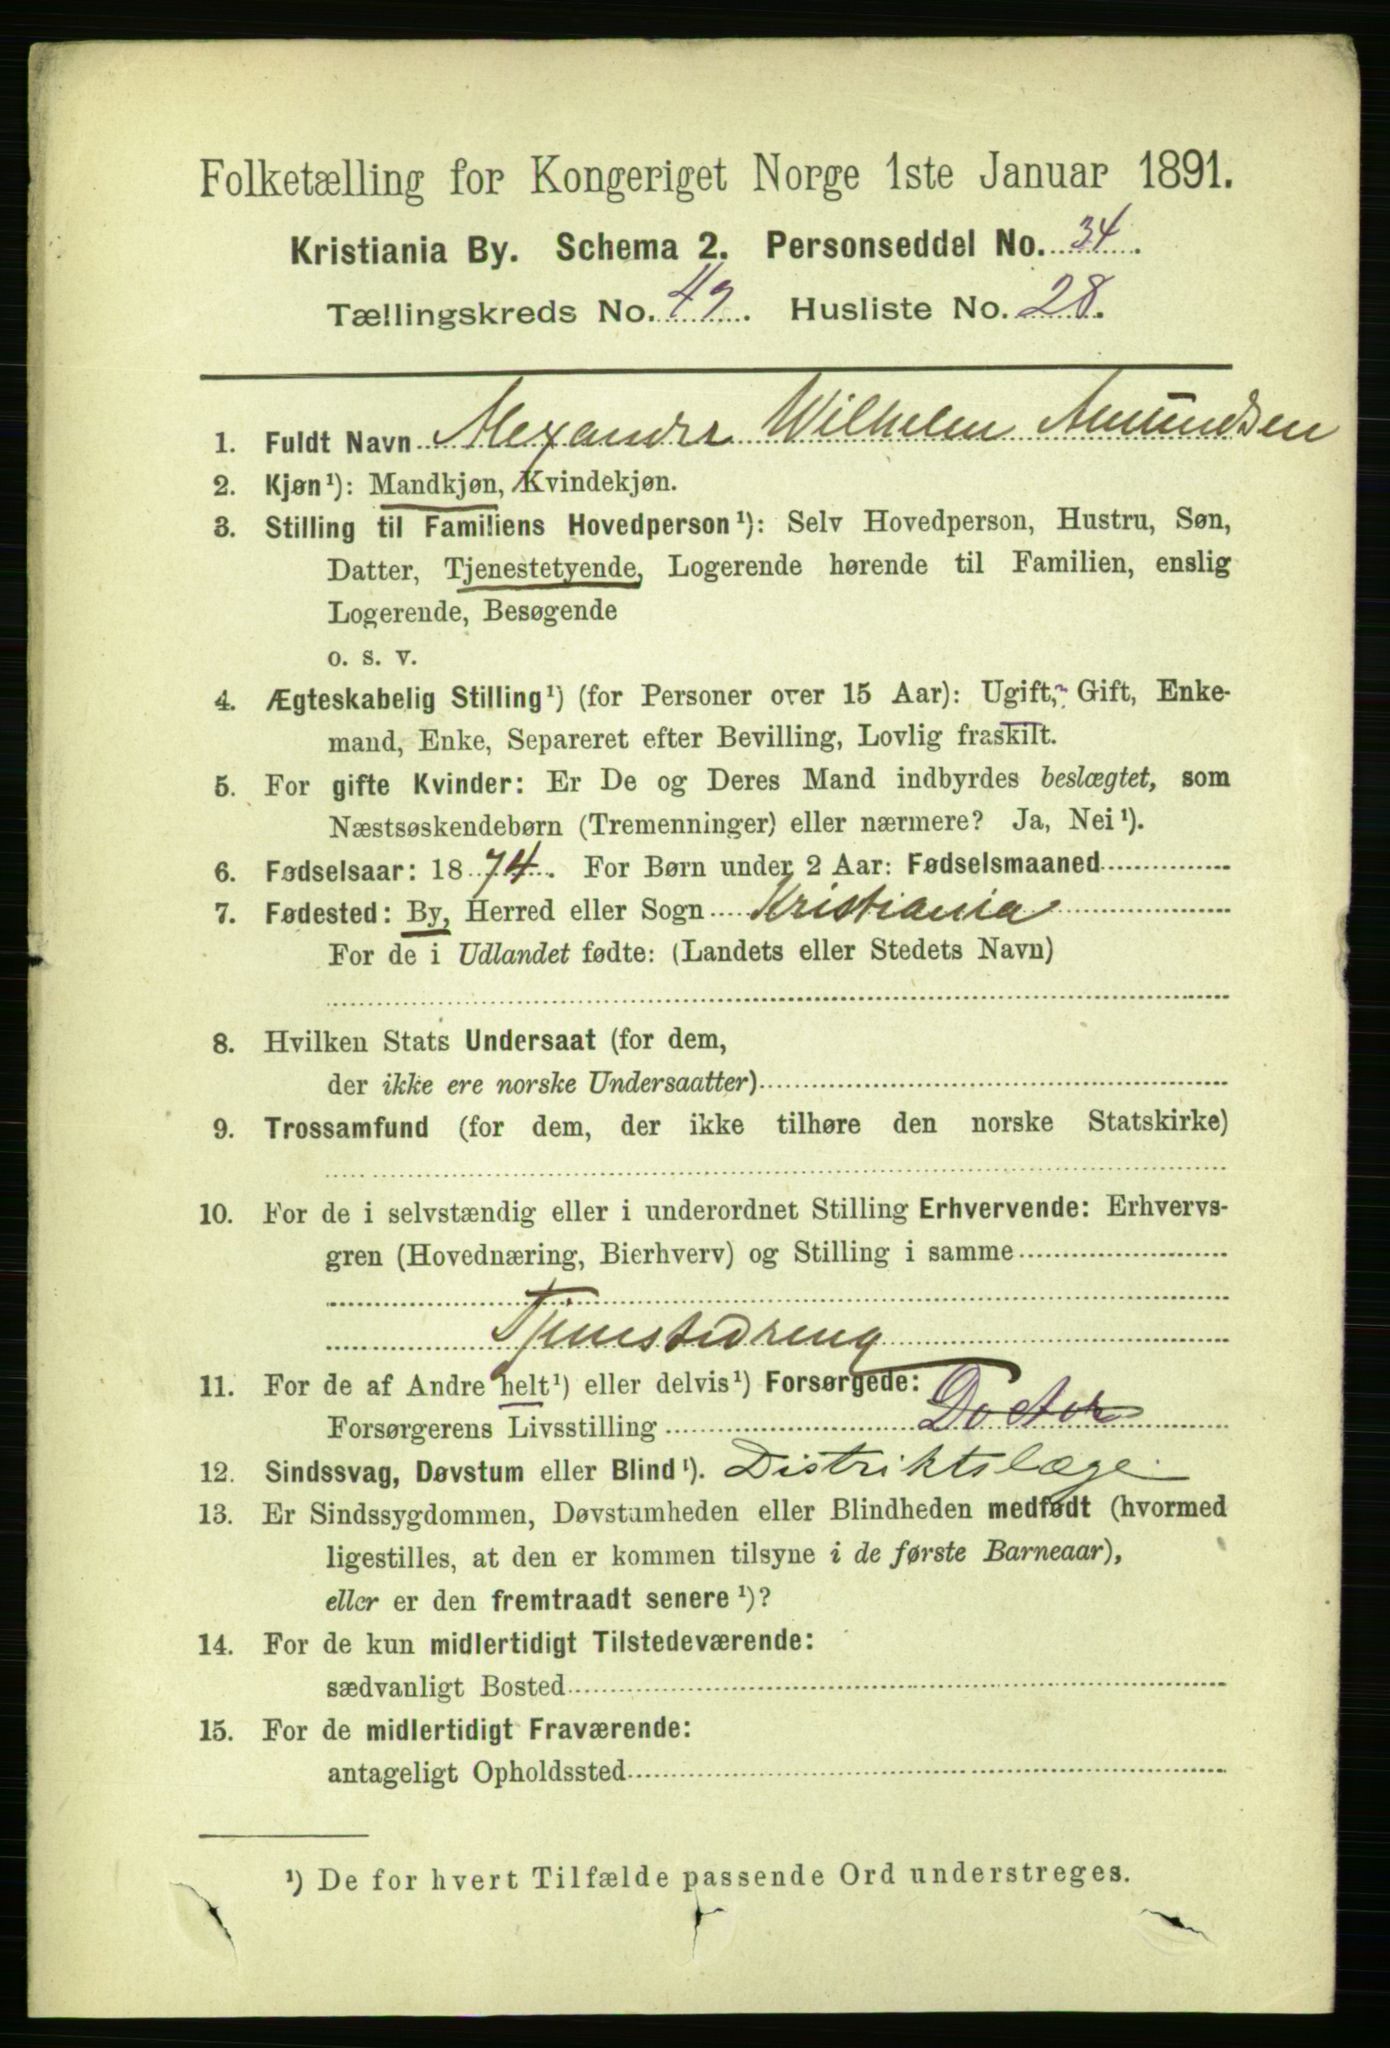 Folketælling for Kongeriget Norge 1ste Januar 1891.
Kristiania By. Schema 2. Personseddel No. 34.
Tællingskreds No. 49. Husliste No. 28.
1. Fuldt Navn Alexander Wilhelm Amundsen
2. Kjøn¹): Mandkjøn, Kvindekjøn.
3. Stilling til Familiens Hovedperson¹): Selv Hovedperson, Hustru, Søn,
Datter, Tjenestetyende, Logerende hørende til Familien, enslig
Logerende, Besøgende
o. s. v.
4. Ægteskabelig Stilling¹) (for Personer over 15 Aar): Ugift, Gift, Enke-
mand, Enke, Separeret efter Bevilling, Lovlig fraskilt.
5. For gifte Kvinder: Er De og Deres Mand indbyrdes beslægtet, som
Næstsøskendebørn (Tremenninger) eller nærmere? Ja, Nei¹).
6. Fødselsaar: 1874. For Børn under 2 Aar: Fødselsmaaned
7. Fødested: By, Herred eller Sogn Kristiania
For de i Udlandet fødte: (Landets eller Stedets Navn)
8. Hvilken Stats Undersaat (for dem,
der ikke ere norske Undersaatter)
9. Trossamfund (for dem, der ikke tilhøre den norske Statskirke)
10. For de i selvstændig eller i underordnet Stilling Erhvervende: Erhvervs-
gren (Hovednæring, Bierhverv) og Stilling i samme
Tjenestedreng
11. For de af Andre helt¹) eller delvis¹) Forsørgede:
Forsørgerens Livsstilling Doctor
12. Sindssvag, Døvstum eller Blind¹). Distriktslæge
13. Er Sindssygdommen, Døvstumheden eller Blindheden medfødt (hvormed
ligestilles, at den er kommen tilsyne i de første Barneaar),
eller er den fremtraadt senere¹)?
14. For de kun midlertidigt Tilstedeværende:
sædvanligt Bosted
15. For de midlertidigt Fraværende:
antageligt Opholdssted
¹) De for hvert Tilfælde passende Ord understreges.